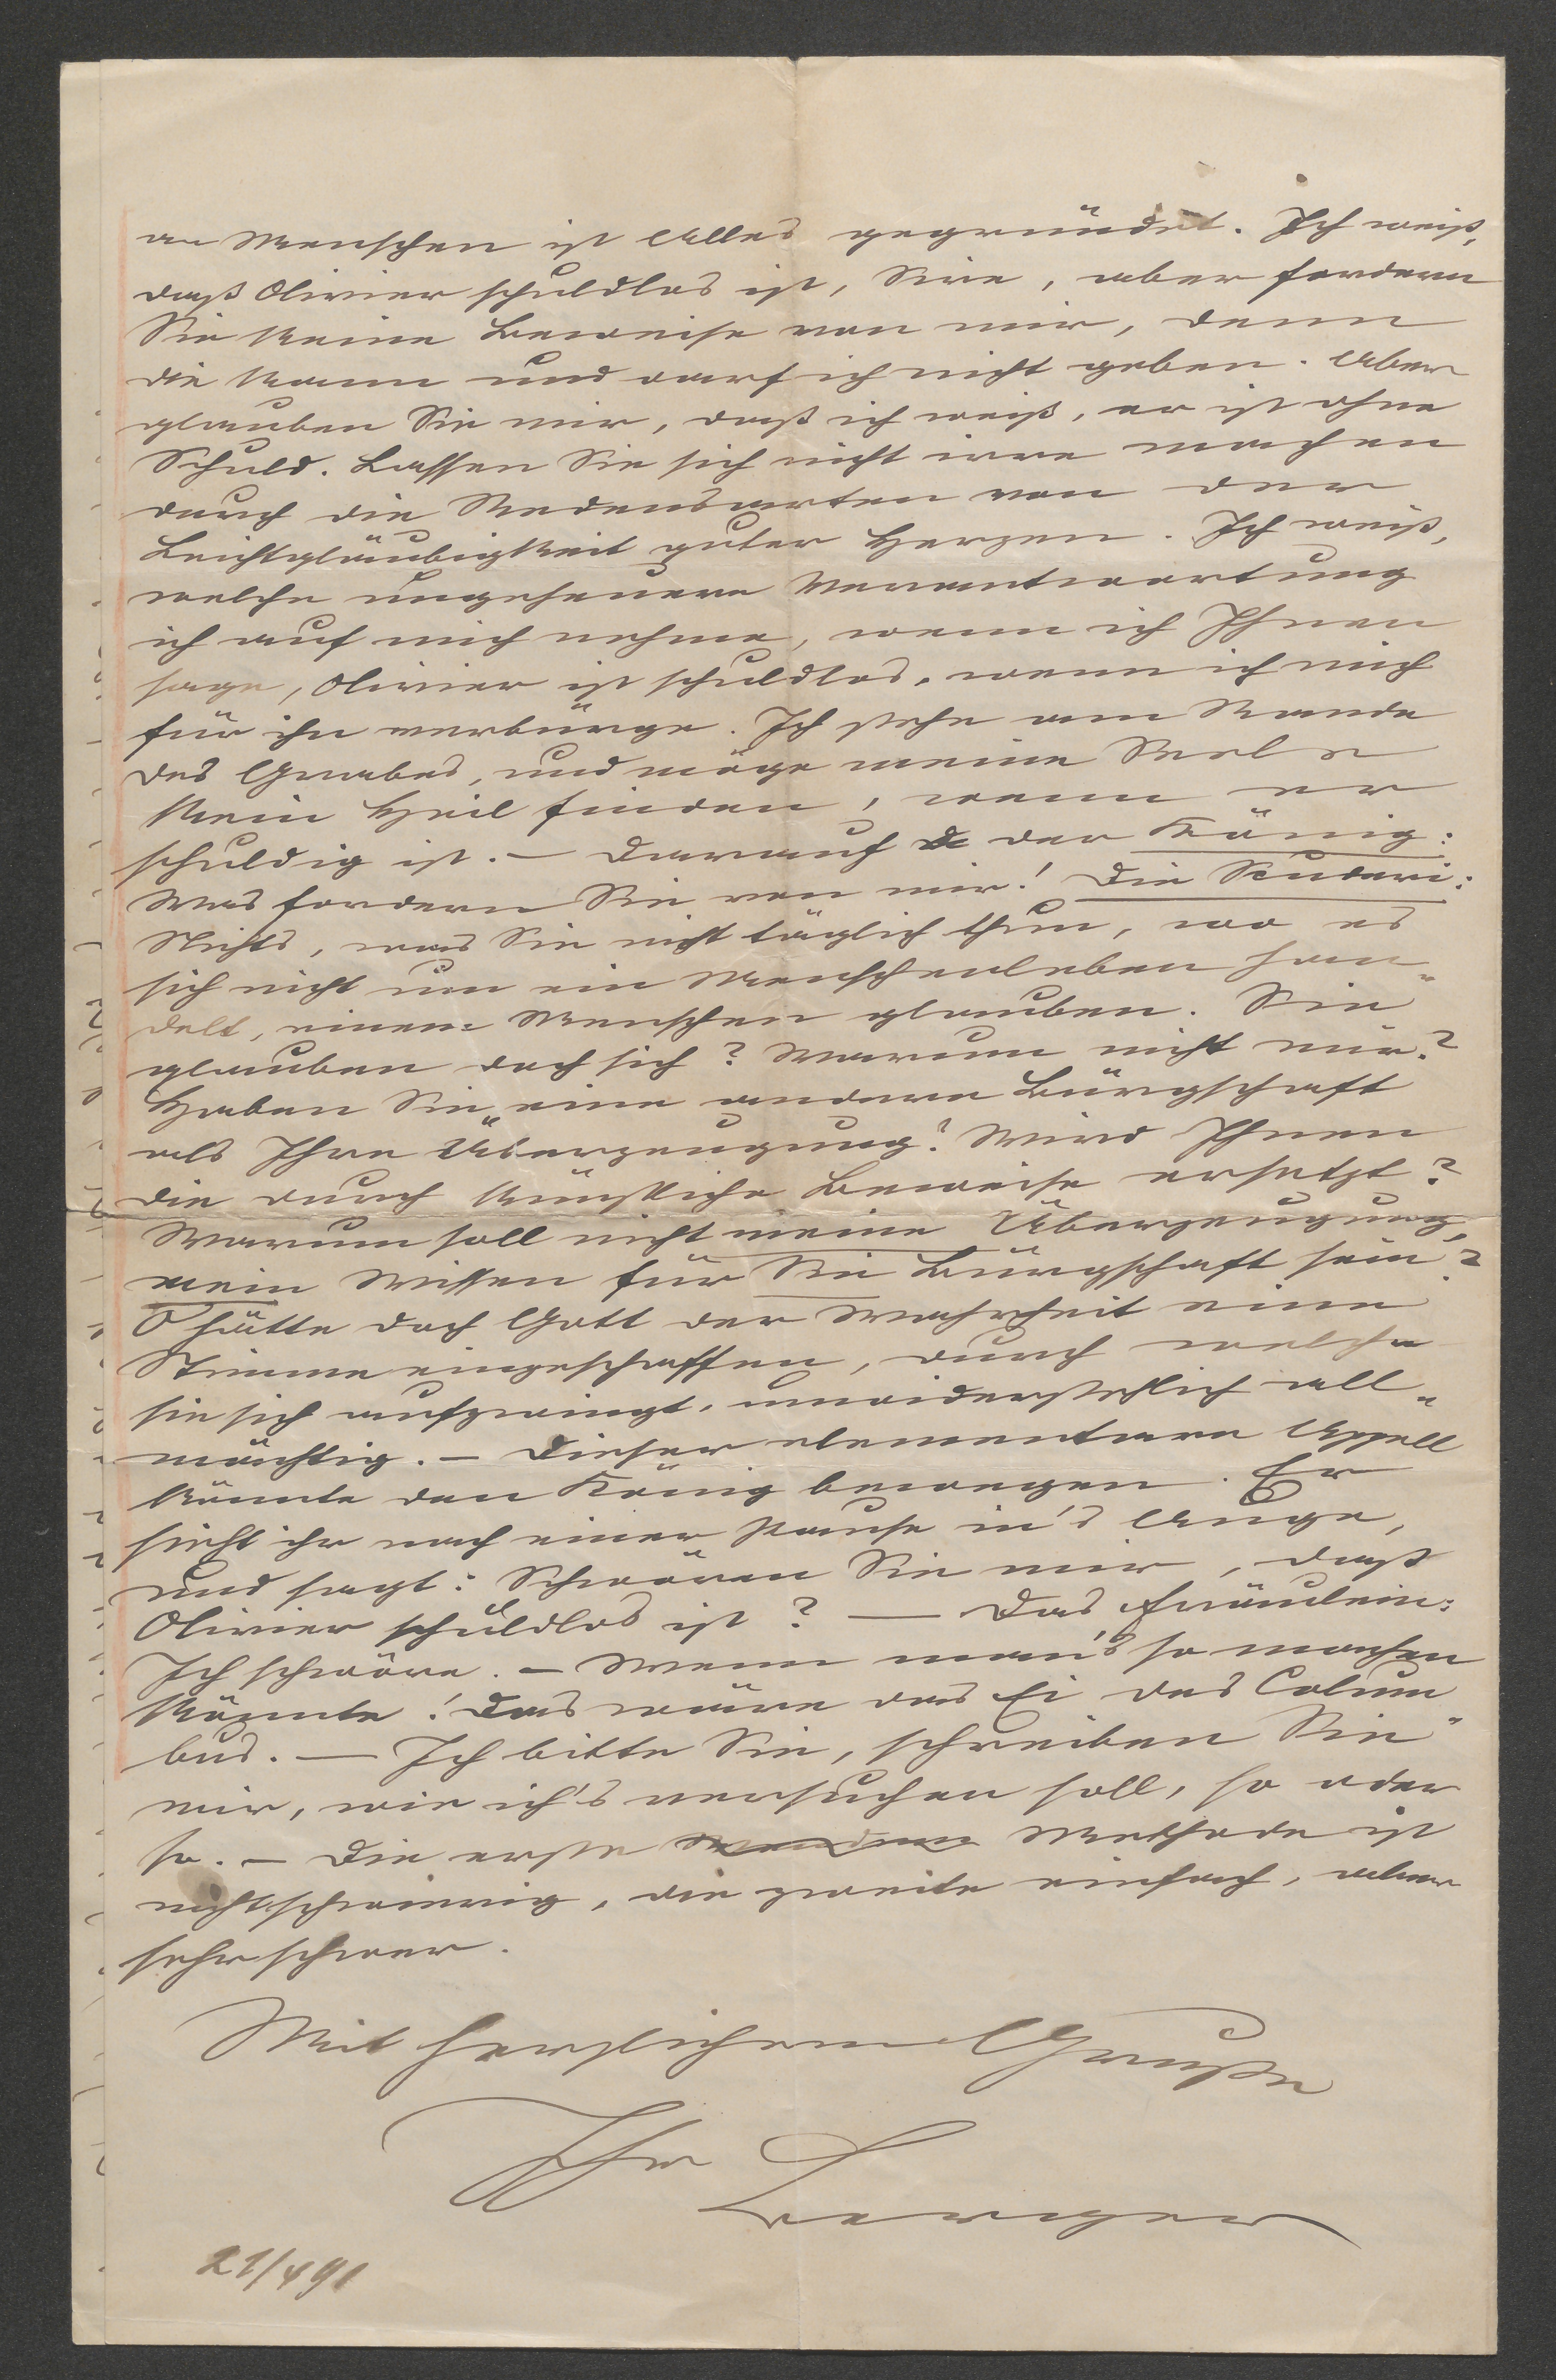 an Menschen ist Alles gegründet. Ich weiß,
daß Olivier schuldlos ist, Sire, aber fordern
Sie keine Beweise von mir, denn
die kann und darf ich nicht geben. Aber
glauben Sie mir, daß ich weiß, er ist ohne
Schuld. Lassen Sie sich nicht irre machen
durch die Redensarten von der
Leichtgläubigkeit guter Herzen. Ich weiß,
welche ungeheuere Verantwortung
ich auf mich nehme, wenn ich Ihnen
sage, Olivier ist schuldlos, wenn ich mich
für ihn verbürge. Ich stehe am Rande
des Grabes, und möge meine Seele
kein Heil finden, wenn er
schuldig ist. – Darauf der König:
Was fordern Sie von mir! Die Scuderi:
Nichts, was Sie nicht täglich thun, wo es
sich nicht um ein Menschenleben han„
delt, einem Menschen glauben. Sie
glauben doch sich? Warum nicht mir?
Haben Sie eine andere Bürgschaft
als Ihre Überzeugung? Wird Ihnen
die durch künstliche Beweise ersetzt?
Warum soll nicht meine Überzeugung,
mein Wissen für Sie Bürgschaft sein?
O hätte doch Gott der Wahrheit eine
Stimme eingeschaffen, durch welche
sie sich aufzwingt, unwiderstehlich all„
mächtig. – Dieser elementare Appell
könnte den König bewegen. Er
sieht ihr nach einer Pause in's Auge,
und sagt: Schwören Sie mir, daß
Olivier schuldlos ist? — Das Fräulein:
Ich schwöre. – Wenn man's so machen
könnte! Das wäre das Ei des Colum„
bus. — Ich bitte Sie, schreiben Sie
mir, wie ich's versuchen soll, so oder
so. – Die erste Methode ist
nicht schwierig, die zweite einfach, aber
sehr schwer.
Mit herzlichem Gruße
Ihr
Berger
21/4 91